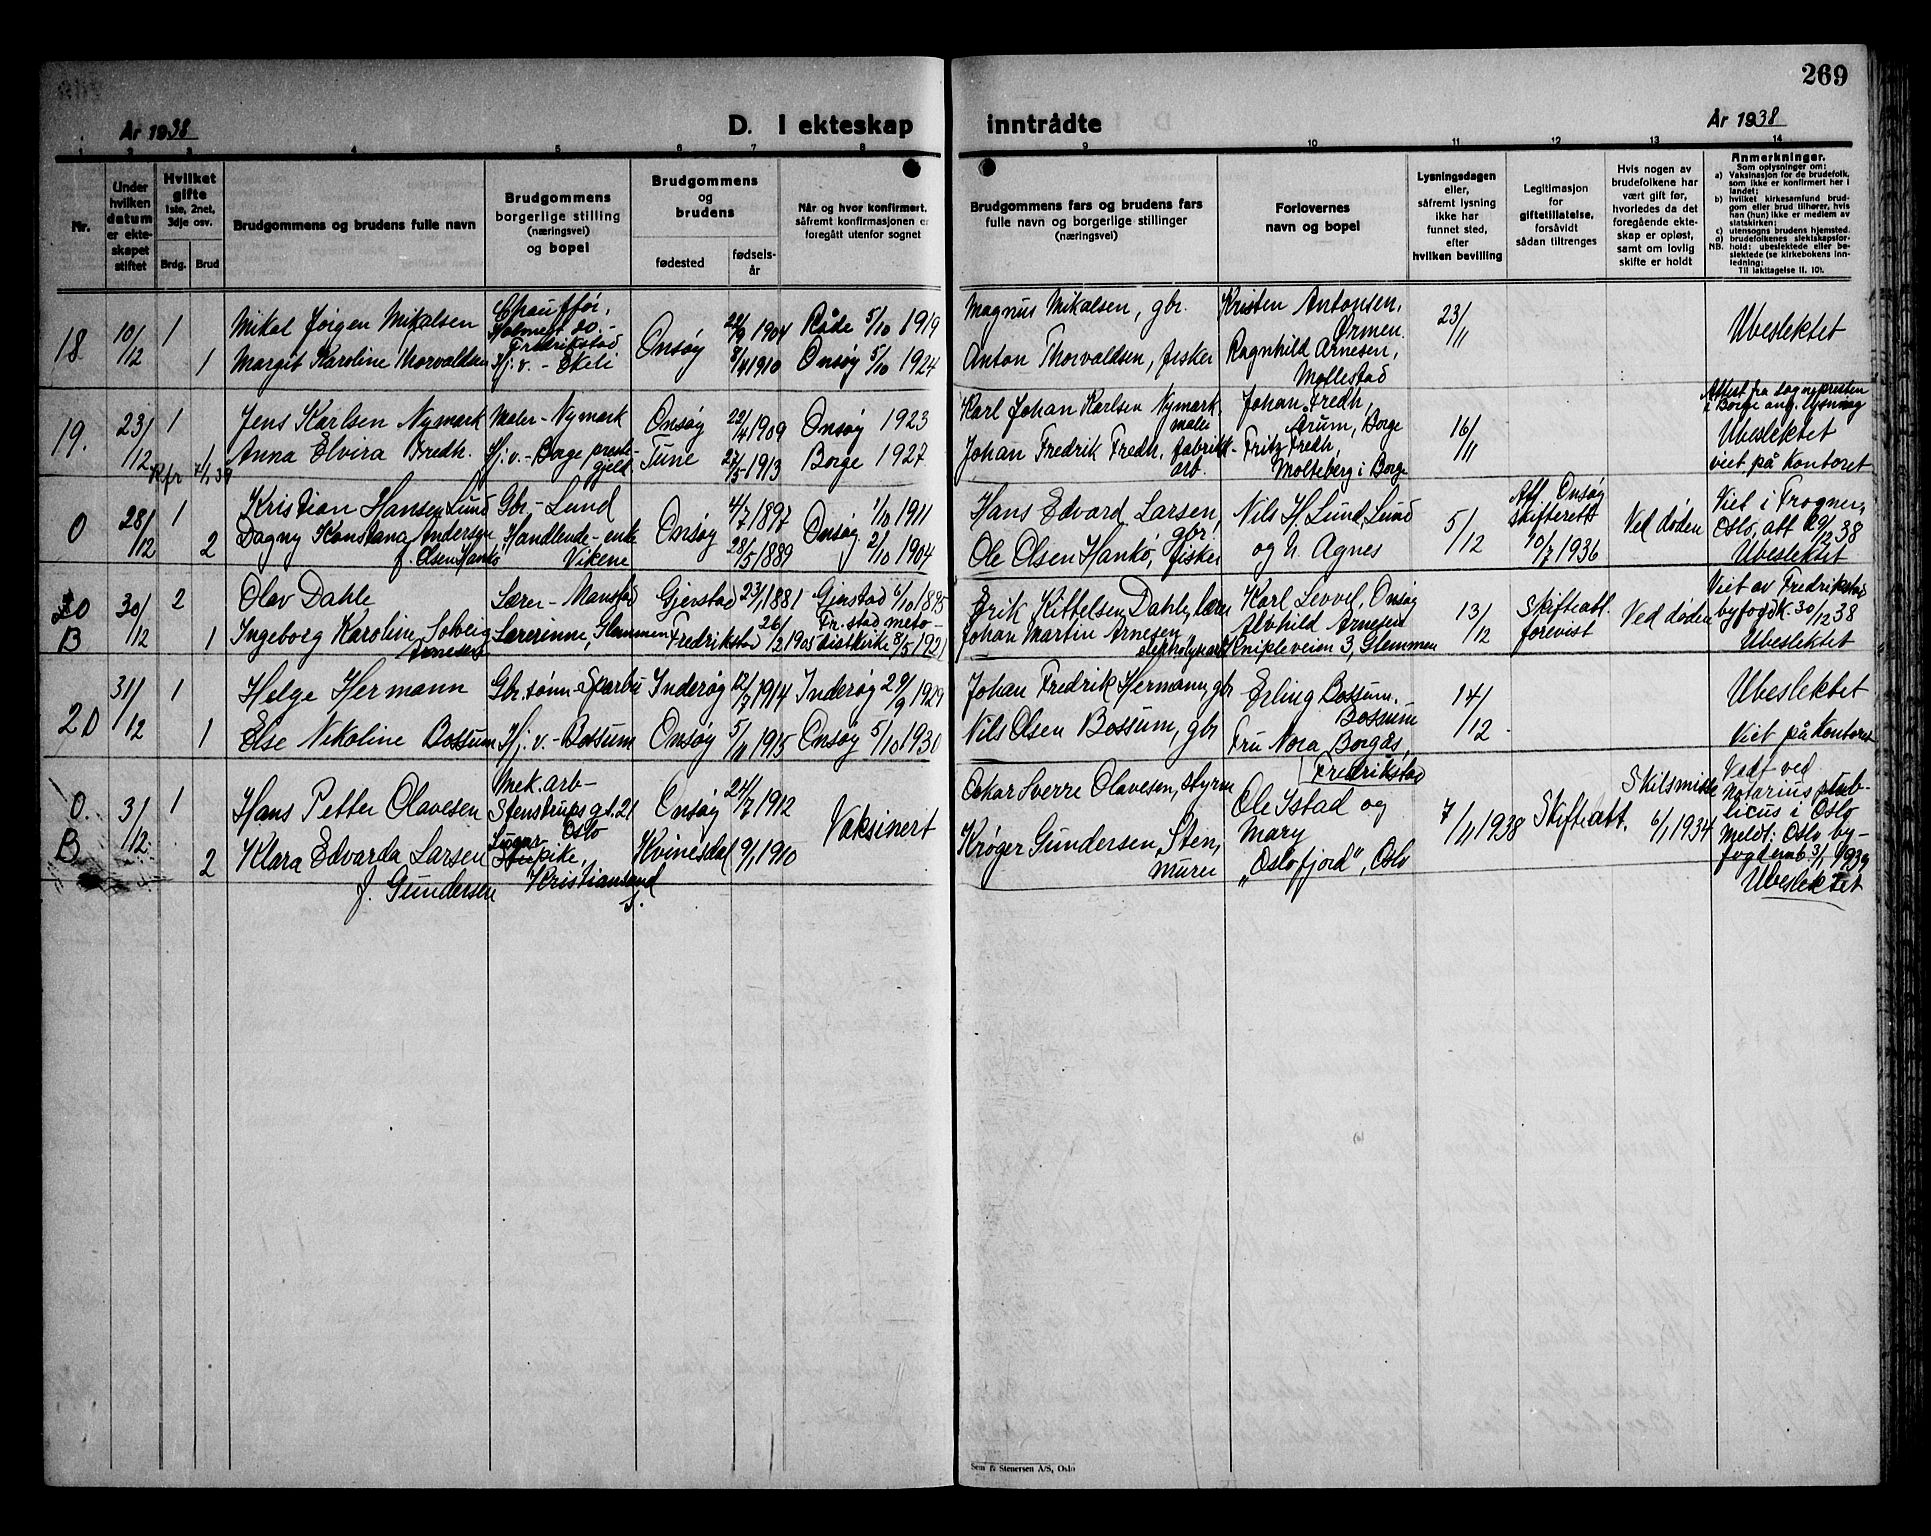 269
År 1938
D. I ekteskap
inntrådte
År 1938
1 2 3 4 5 6 7 8 9 10 11 12 13 14
Nr.
Under hvilken datum er ekteskapet stiftet
Hvilket gifte
1ste, 2net, 3dje osv.
Brdg. Brud
Brudgommens og brudens fulle navn
Brudgommens borgerlige stilling (næringsvei) og bopel
Brudgommens og brudens
fødested
fødselsår
Når og hvor konfirmert, såfremt konfirmasjonen er foregått utenfor sognet
Brudgommens fars og brudens fars fulle navn og borgerlige stillinger (næringsvei)
Forlovernes navn og bopel
Lysningsdagen eller, såfremt lysning ikke har funnet sted, efter hvilken bevilling
Legitimasjon for giftetillatelse, forsåvidt sådan tiltrenges
Hvis nogen av brudefolkene har vært gift før, hvorledes da det foregående ekteskap er opløst, samt om lovlig skifte er holdt
Anmerkninger.
Som oplysninger om:
a) Vaksinasjon for de brudefolk, som ikke er konfirmert her i landet;
b) hvilket kirkesamfund brudgom eller brud tilhører, hvis han (hun) ikke er medlem av statskirken;
c) utensogns brudens hjemsted.
d) brudefolkenes slektskapsforhold: ubeslektede eller beslektede (se kirkebokens innledning:
NB. Til iakttagelse II. 10).
18. 10/12 1 Mikal Jørgen Mikalsen Chauffør, Fredrikstad Onsøy 22/9 1904 Råde 5/10 1919 Magnus Mikalsen, gbr. Kristen Antonsen, Ørmen. 23/11 Ubeslektet
1 Margit Karoline Thorvaldsen Hj.v. - Ekeli 8/4 1910 Onsøy 5/10 1924 Anton Thorvaldsen, fisker Ragnhild Arnesen, Mollestad
19. 23/12 1 Jens Karlsen Nymark Maler - Nymark Onsøy 22/4 1909 Onsøy 1923 Karl Johan Karlsen Nymark maler Johan Fredh, Årum, Borge 16/11 Attest fra sognepresten i Borge ang. lysning
1 Anna Elvira Fredh. Hj.v. - Borge prestegjeld Tune 27/5 1913 Borge 1927 Johan Fredrik Fredh, fabrikkarb. Fritz Fredh, Molteberg i Borge Ubeslektet viet på Kontoret
O 28/12 1 Kristian Hansen Lund Gbr. - Lund Onsøy 4/7 1897 Onsøy 1/10 1911 Hans Edvard Larsen, gbr. Nils H. Lund, Lund 5/12 Att. Onsøy skifterett 10/7 1936 Ved døden Viet i Frogner, Oslo, att 29/12 38
2 Dagny Konstana Andersen f. Olsen Hankø Handlende - enke Vikene 28/5 1889 Onsøy 2/10 1904 Ole Olsen Hankø, fisker og h. Agnes Ubeslektet
O B 30/12 2 Olav Dahle Lærer - Manstad Gjerstad 23/1 1881 Gjerstad 6/10 1895 Erik Kittelsen Dahle, lærer Karl Levvel, Onsøy 13/12 Skifteatt. forevist Ved døden Viet av Fredrikstad byfogdk. 30/12 38
1 Ingeborg Karoline Solveig Arnesen Lærerinne, Glemmen Fredrikstad 26/2 1905 Fr.stad metodistkirke 8/5 1921 Johan Martin Arnesen Alvhild Arnesen Knipleveien 3, Glemmen Ubeslektet
20 31/12 1 Helge Hermann Gbr.sønn - Sparbu Inderøy 12/7 1914 Inderøy 29/9 1929 Johan Fredrik Hermann, gbr Erling Bossum. Bossum 14/12 Ubeslektet
1 Else Nikoline Bossum Hj.v. - Bossum Onsøy 5/11 1915 Onsøy 5/10 1930 Nils Olsen Bossum, gbr Fru Nora Borgås, Fredrikstad Viet på Kontoret
O. B 3/12 1 Hans Petter Olavesen Mek.arb - Stenstrups gt. 21 Oslo Onsøy 24/7 1912 Vaksinert Oskar Sverre Olavesen, styrm Ole Istad og Mary 7/11 1938 Skifteatt. Skilsmisse 6/1 1934 Vedt ved notarius publicus i Oslo
2 Klara Edvarda Larsen f. Gundersen Kristiansand S. Kvinesdal 9/1 1910 Krøger Gundersen, Stenmurer "Oslofjord", Oslo Meldt: Oslo byfogdemb. 3/1 1939 Ubeslektet
Sem & Stenersen A/S, Oslo